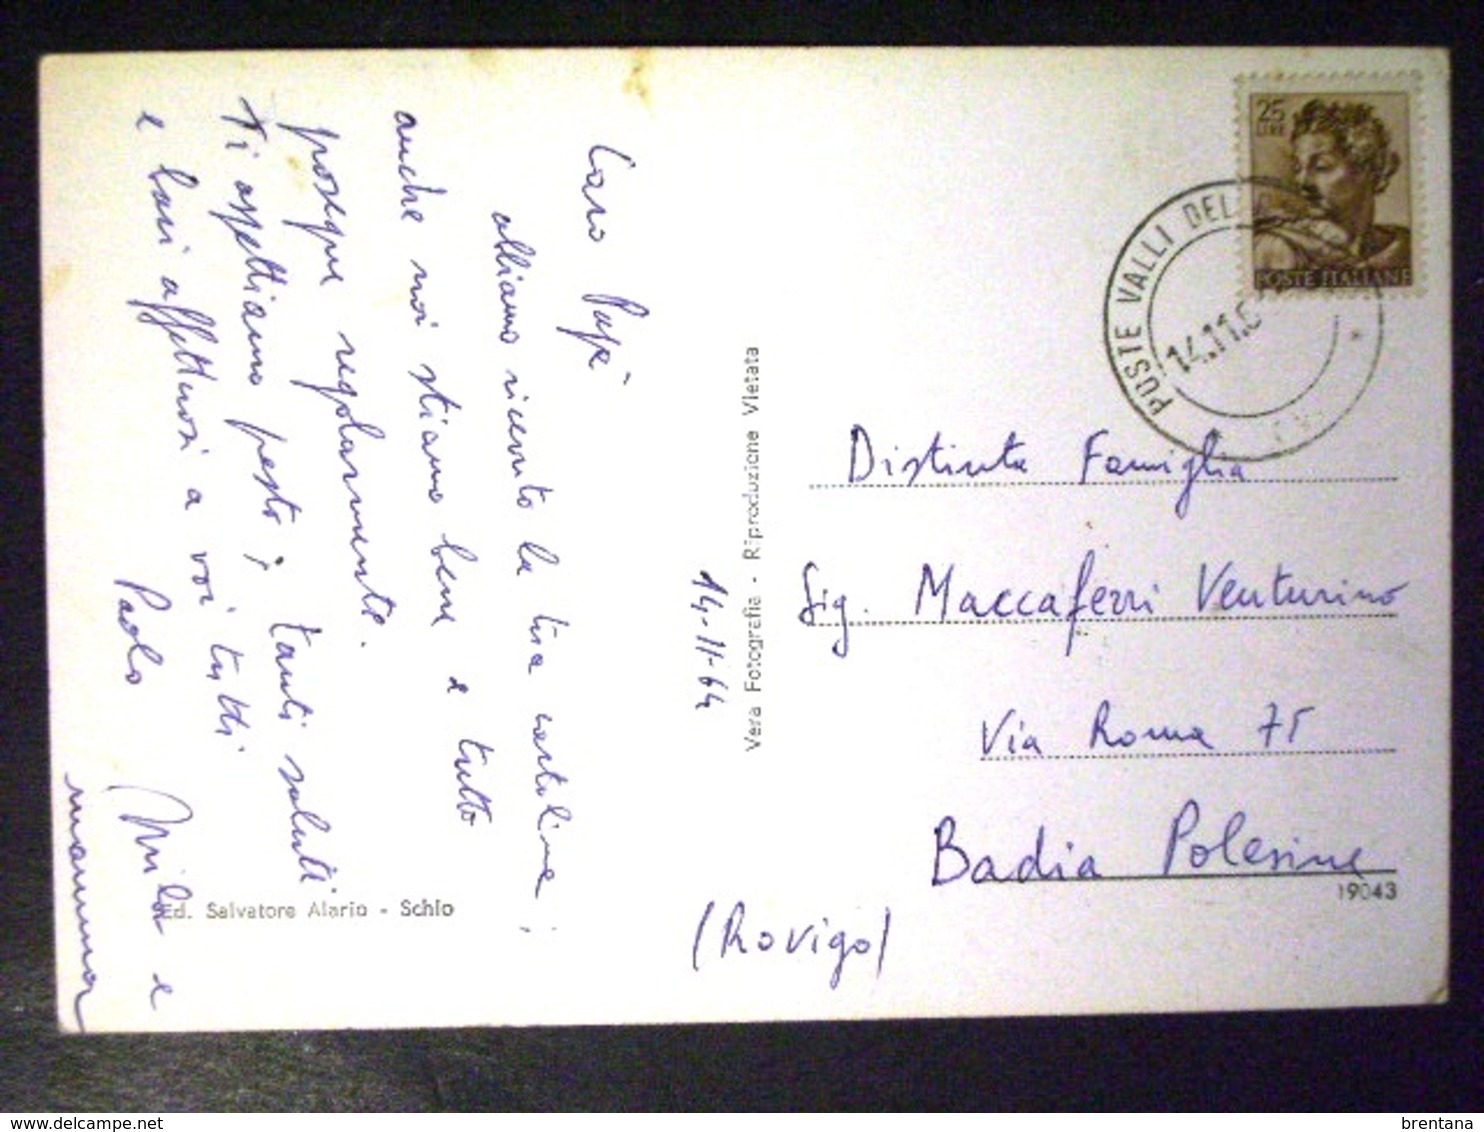 Caro Papà
abbiamo ricevuto la tua cartolina;
anche noi stiamo bene e tutto
prosegue regolarmente.
Ti aspettiamo presto; tanti saluti
e baci affettuosi a voi tutti
Paolo Mila e
mamma
14-11-64
Vera Fotografia - Riproduzione Vietata
Ed. Salvatore Alario - Schio
25
LIRE
POSTE ITALIANE
POSTE VALLI DEL
14.11.6
Distinta Famiglia
Sig. Maccaferri Venturino
Via Roma 75
Badia Polesine
19043
(Rovigo)
brentana